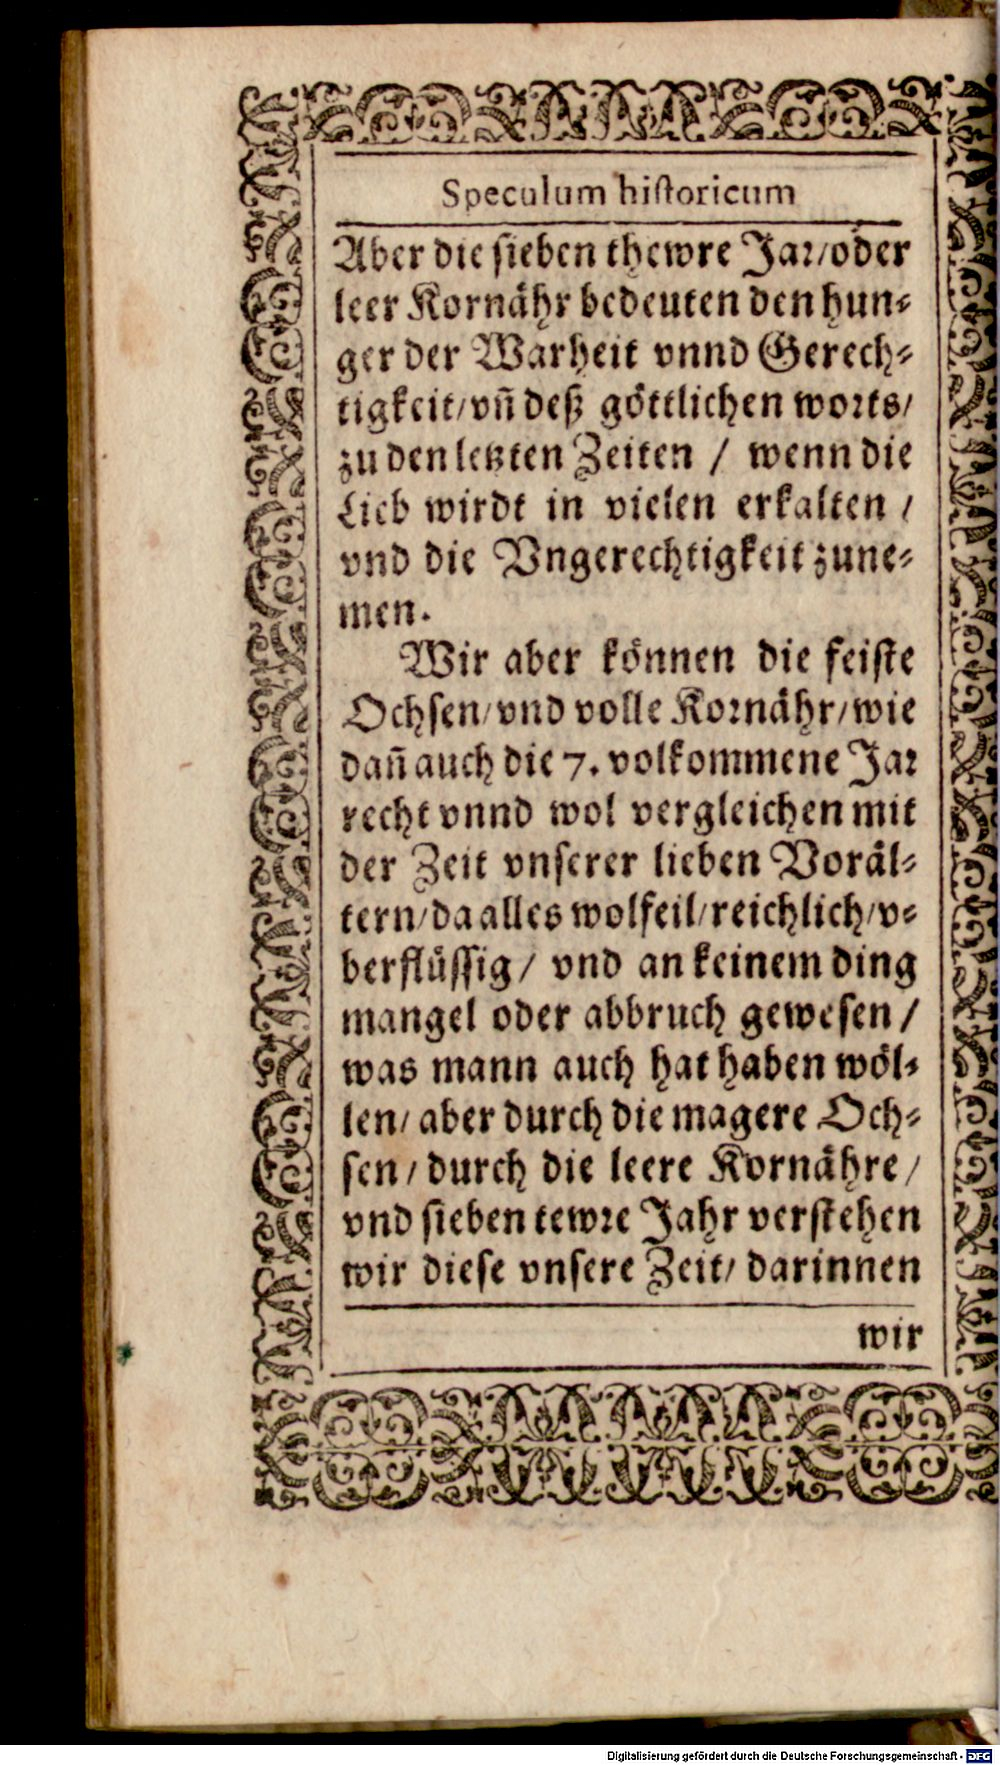 Speculum historicum
Aber die sieben thewre Jar/oder
leer Kornähr bedeuten den hun⸗
ger der Warheit vnnd Gerech⸗
tigkeit/vñ deß göttlichen worts/
zu den letzten Zeiten / wenn die
Lieb wirdt in vielen erkalten /
vnd die Vngerechtigkeit zune⸗
men.
Wir aber können die feiste
Ochsen/vnd volle Kornähr/wie
dañ auch die 7. volkommene Jar
recht vnnd wol vergleichen mit
der Zeit vnserer lieben Voräl⸗
tern/da alles wolfeil/reichlich/v⸗
berflüssig/ vnd an keinem ding
mangel oder abbruch gewesen /
was mann auch hat haben wöl⸗
len/ aber durch die magere Och⸗
sen/ durch die leere Kornähre/
vnd sieben tewre Jahr verstehen
wir diese vnsere Zeit/ darinnen
wir
Digitalisierung gefördert durch die Deutsche Forschungsgemeinschaft - DFG